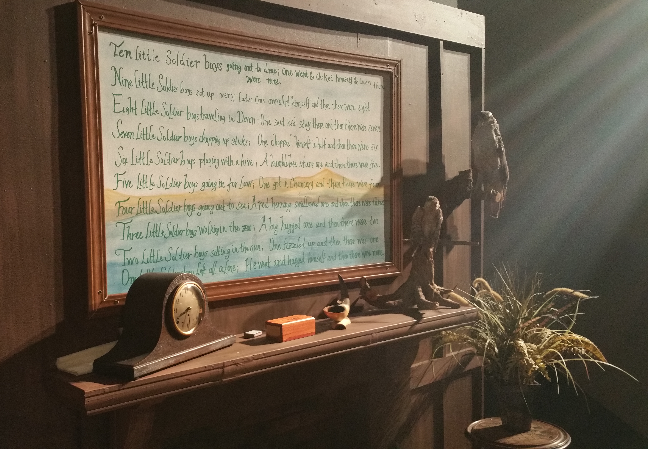 Ten little Soldier boys going out to dine; One went to choked himself and then
were nine.
Nine little Soldier boys sat up very late; One overslept himself and then there were eight
Eight little Soldier boys travelling in Devon; One said he'd stay there and then there were seven
Seven little Soldier boys chopping up sticks; One chopped himself in half and then there were six
Six little Soldier boys playing with a hive; A bumblebee stung one and then there were five
Five little Soldier boys going in for Law; One got in Chancery and then there were four
Four little Soldier boys going out to sea; A red herring swallowed one and then there were three
Three little Soldier boys walking in the zoo; A big bear hugged one and then there were two
Two little Soldier boys sitting in the sun; One frizzled up and then there was one
One little Soldier boy left all alone; He went and hanged himself and then there were none